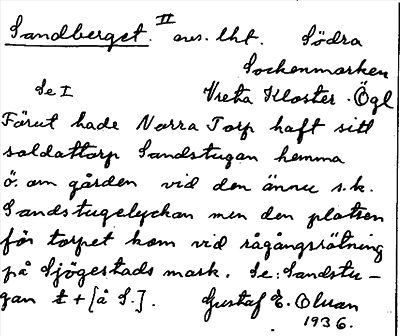 Sandberget. II avs. lht. Södra
Sockenmarken
Se I Vreta Kloster. Ögl
Förut hade Norra Torp haft sitt
soldattorp Sandstugan hemma
ö. om gården vid den ännu s.k.
Sandstugelyckan men den platsen
för torpet kom vid rågångsrätning
på Sjögestads mark. Se: Sandstu-
gan t + [å S.].
Gustaf E. Olsson
1936.